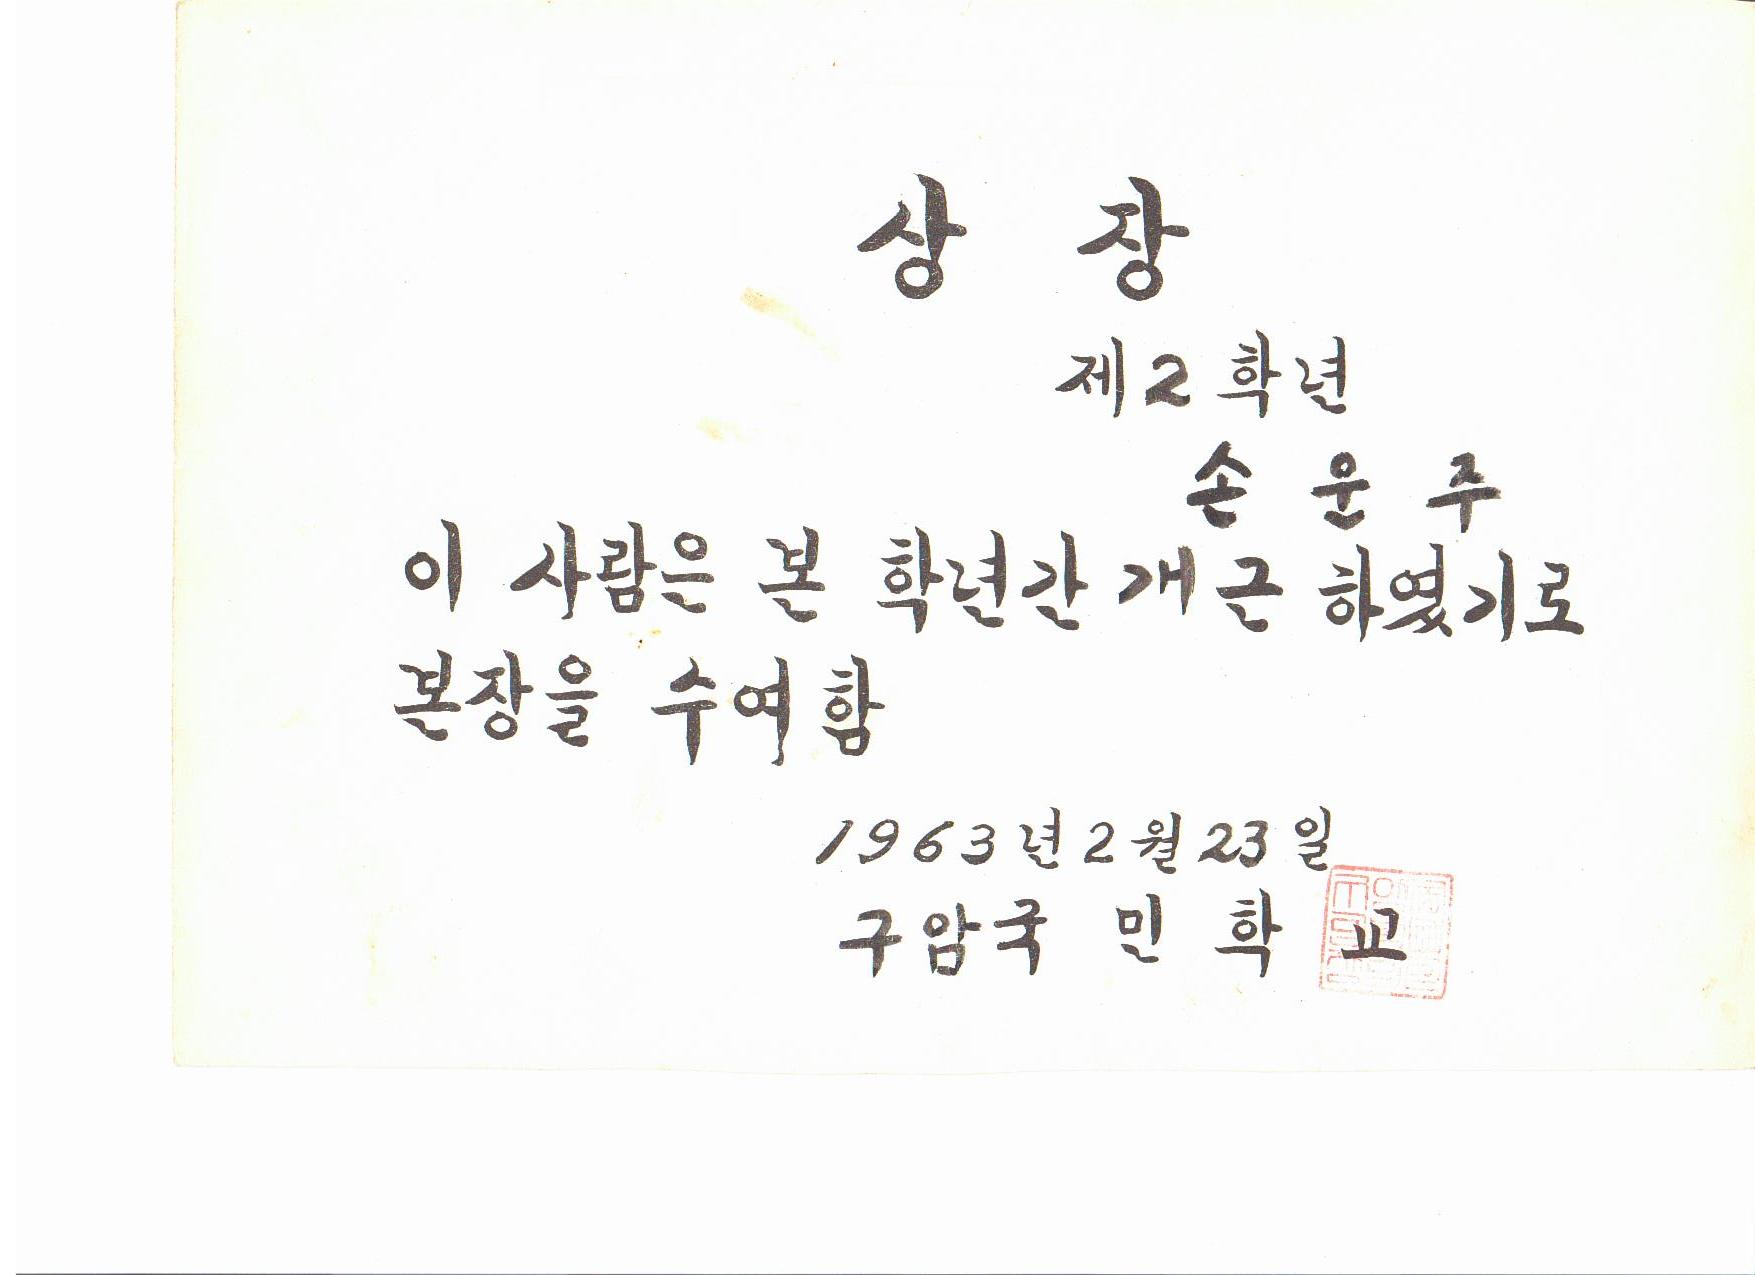 상 장
제2학년
손 운 주
이 사람은 본 학년간 개근 하였기로
본장을 수여함
1963년 2월 23일
구암국 민 학 교